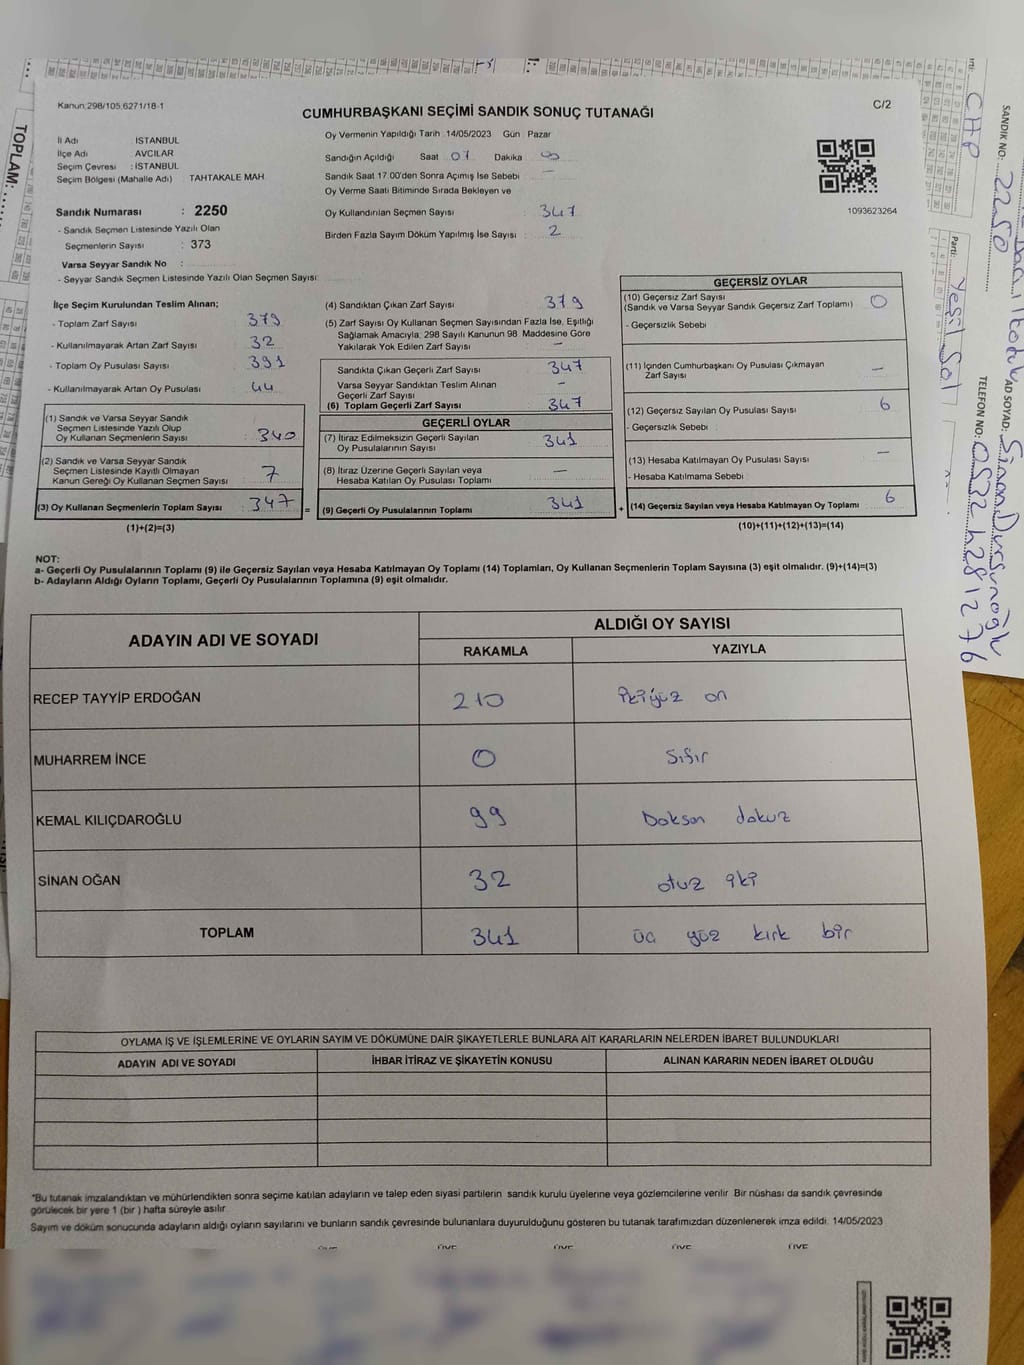 Kanun:298/105,6271/18-1
C/2
CUMHURBAŞKANI SEÇİMİ SANDIK SONUÇ TUTANAĞI
İl Adı İSTANBUL
İlçe Adı AVCILAR
Seçim Çevresi : İSTANBUL
Seçim Bölgesi (Mahalle Adı) TAHTAKALE MAH.
Sandık Numarası : 2250
- Sandık Seçmen Listesinde Yazılı Olan
Seçmenlerin Sayısı : 373
Varsa Seyyar Sandık No :
- Seyyar Sandık Seçmen Listesinde Yazılı Olan Seçmen Sayısı:
Oy Vermenin Yapıldığı Tarih 14/05/2023 Gün Pazar
Sandığın Açıldığı Saat 07 Dakika
Sandık Saat 17.00'den Sonra Açımış İse Sebebi —
Oy Verme Saati Bitiminde Sırada Bekleyen ve
Oy Kullandırılan Seçmen Sayısı : 347
Birden Fazla Sayım Döküm Yapılmış İse Sayısı : 2
1093623264
İlçe Seçim Kurulundan Teslim Alınan;
- Toplam Zarf Sayısı : 379
- Kullanılmayarak Artan Zarf Sayısı : 32
- Toplam Oy Pusulası Sayısı : 391
- Kullanılmayarak Artan Oy Pusulası : 44
(1) Sandık ve Varsa Seyyar Sandık
Seçmen Listesinde Yazılı Olup
Oy Kullanan Seçmenlerin Sayısı : 340
(2) Sandık ve Varsa Seyyar Sandık
Seçmen Listesinde Kayıtlı Olmayan
Kanun Gereği Oy Kullanan Seçmen Sayısı : 7
(3) Oy Kullanan Seçmenlerin Toplam Sayısı : 347
(1)+(2)=(3)
(4) Sandıktan Çıkan Zarf Sayısı : 379
(5) Zarf Sayısı Oy Kullanan Seçmen Sayısından Fazla İse, Eşitliği
Sağlamak Amacıyla, 298 Sayılı Kanunun 98. Maddesine Göre
Yakılarak Yok Edilen Zarf Sayısı : —
Sandıkta Çıkan Geçerli Zarf Sayısı : 347
Varsa Seyyar Sandıktan Teslim Alınan
Geçerli Zarf Sayısı : —
(6) Toplam Geçerli Zarf Sayısı : 347
GEÇERLİ OYLAR
(7) İtiraz Edilmeksizin Geçerli Sayılan
Oy Pusulalarının Sayısı : 341
(8) İtiraz Üzerine Geçerli Sayılan veya
Hesaba Katılan Oy Pusulası Toplamı : —
= (9) Geçerli Oy Pusulalarının Toplamı : 341
GEÇERSİZ OYLAR
(10) Geçersiz Zarf Sayısı
(Sandık ve Varsa Seyyar Sandık Geçersiz Zarf Toplamı) : 0
- Geçersizlik Sebebi
(11) İçinden Cumhurbaşkanı Oy Pusulası Çıkmayan
Zarf Sayısı : —
(12) Geçersiz Sayılan Oy Pusulası Sayısı : 6
- Geçersizlik Sebebi :
(13) Hesaba Katılmayan Oy Pusulası Sayısı : —
- Hesaba Katılmama Sebebi :
+ (14) Geçersiz Sayılan veya Hesaba Katılmayan Oy Toplamı : 6
(10)+(11)+(12)+(13)=(14)
NOT:
a- Geçerli Oy Pusulalarının Toplamı (9) ile Geçersiz Sayılan veya Hesaba Katılmayan Oy Toplamı (14) Toplamları, Oy Kullanan Seçmenlerin Toplam Sayısına (3) eşit olmalıdır. (9)+(14)=(3)
b- Adayların Aldığı Oyların Toplamı, Geçerli Oy Pusulalarının Toplamına (9) eşit olmalıdır.
ADAYIN ADI VE SOYADI
ALDIĞI OY SAYISI
RAKAMLA YAZIYLA
RECEP TAYYİP ERDOĞAN 210 ikiyüz on
MUHARREM İNCE 0 Sıfır
KEMAL KILIÇDAROĞLU 99 Doksan dokuz
SİNAN OĞAN 32 otuz iki
TOPLAM 341 üç yüz kırk bir
OYLAMA İŞ VE İŞLEMLERİNE VE OYLARIN SAYIM VE DÖKÜMÜNE DAİR ŞİKAYETLERLE BUNLARA AİT KARARLARIN NELERDEN İBARET BULUNDUKLARI
ADAYIN ADI VE SOYADI İHBAR İTİRAZ VE ŞİKAYETİN KONUSU ALINAN KARARIN NEDEN İBARET OLDUĞU
*Bu tutanak imzalandıktan ve mühürlendikten sonra seçime katılan adayların ve talep eden siyasi partilerin sandık kurulu üyelerine veya gözlemcilerine verilir. Bir nüshası da sandık çevresinde
görülecek bir yere 1 (bir ) hafta süreyle asılır.
Sayım ve döküm sonucunda adayların aldığı oyların sayılarını ve bunların sandık çevresinde bulunanlara duyurulduğunu gösteren bu tutanak tarafımızdan düzenlenerek imza edildi. 14/05/2023
TOPLAM:
CHP
SANDIK NO: 2250
Parti: Yeşil Sol
AD SOYAD: Sinan Dursunoğlu
TELEFON NO: 0532 4281276